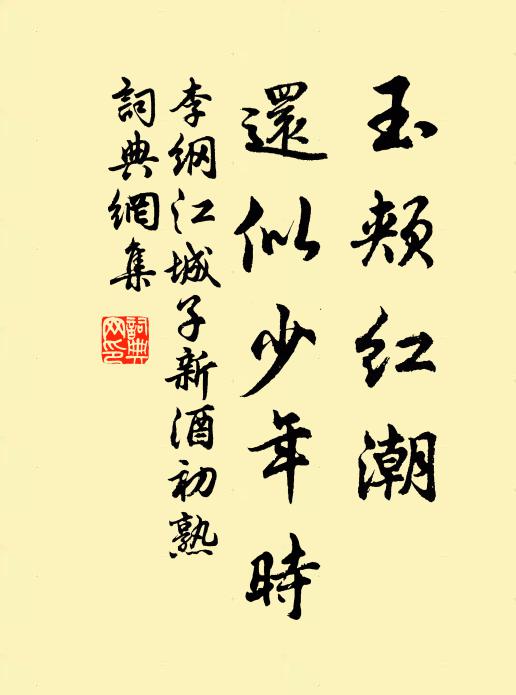 玉頰紅潮
還似少年時
李綱江城子新酒初熟
詞典網集
詞典網印